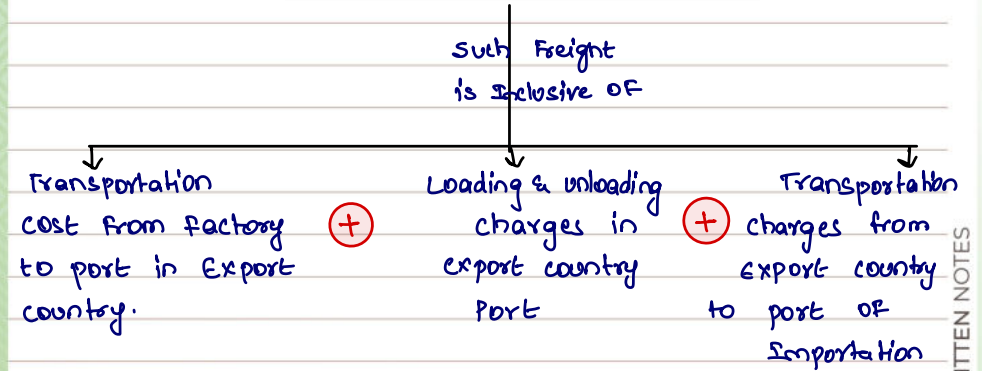 Such Freight
is Inclusive OF
Transportation
cost from factory
to port in Export
country.
+
Loading & unloading
charges in
export country
Port
+
Transportation
charges from
Export country
to port OF
Importation
ITTEN NOTES